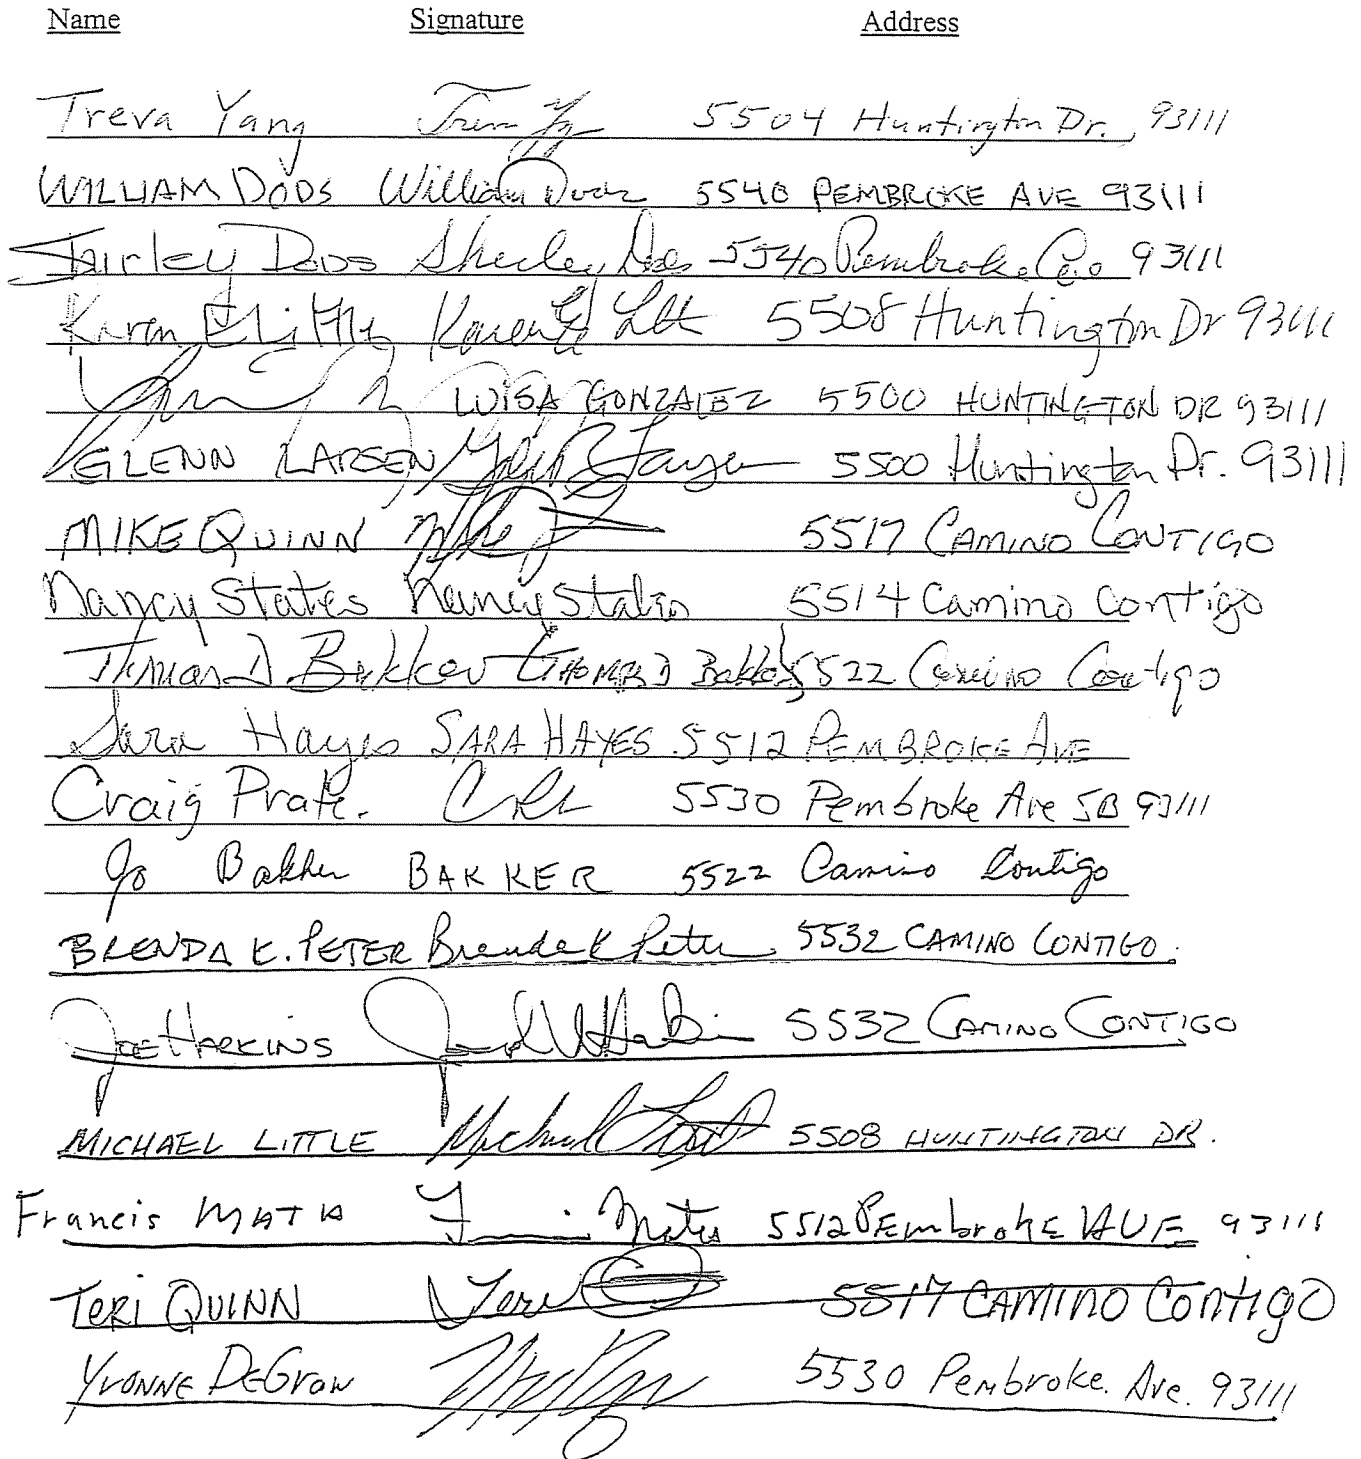 Name Signature Address
Treva Yang 5504 Huntington Dr., 93111
WILLIAM DODS William Dods 5540 PEMBROKE AVE 93111
Shirley Dods Shirley Dods 5540 Pembroke 93111
Karen E Little Karen E Little 5508 Huntington Dr 93111
LUISA GONZALEZ 5500 HUNTINGTON DR 93111
GLENN LARSEN Glenn Larsen 5500 Huntington Dr. 93111
MIKE QUINN Mike 5517 CAMINO CONTIGO
Nancy States Nancy States 5514 Camino Contigo
Thomas D Bakker THOMAS D Bakker 5522 Camino Contigo
Sara Hayes SARA HAYES 5512 PEMBROKE AVE
Craig Prate. 5530 Pembroke Ave SB 93111
Jo Bakker BAKKER 5522 Camino Contigo
BRENDA K. PETER Brenda K Peter 5532 CAMINO CONTIGO.
JOE HARKINS 5532 CAMINO CONTIGO
MICHAEL LITTLE Michael 5508 HUNTINGTON DR.
Francis MATA Mata 5512 PEmbrokE AVE 93111
TERI QUINN Teri 5517 CAMINO CONtIgO
YVONNE DEGrow 5530 Pembroke. Ave. 93111